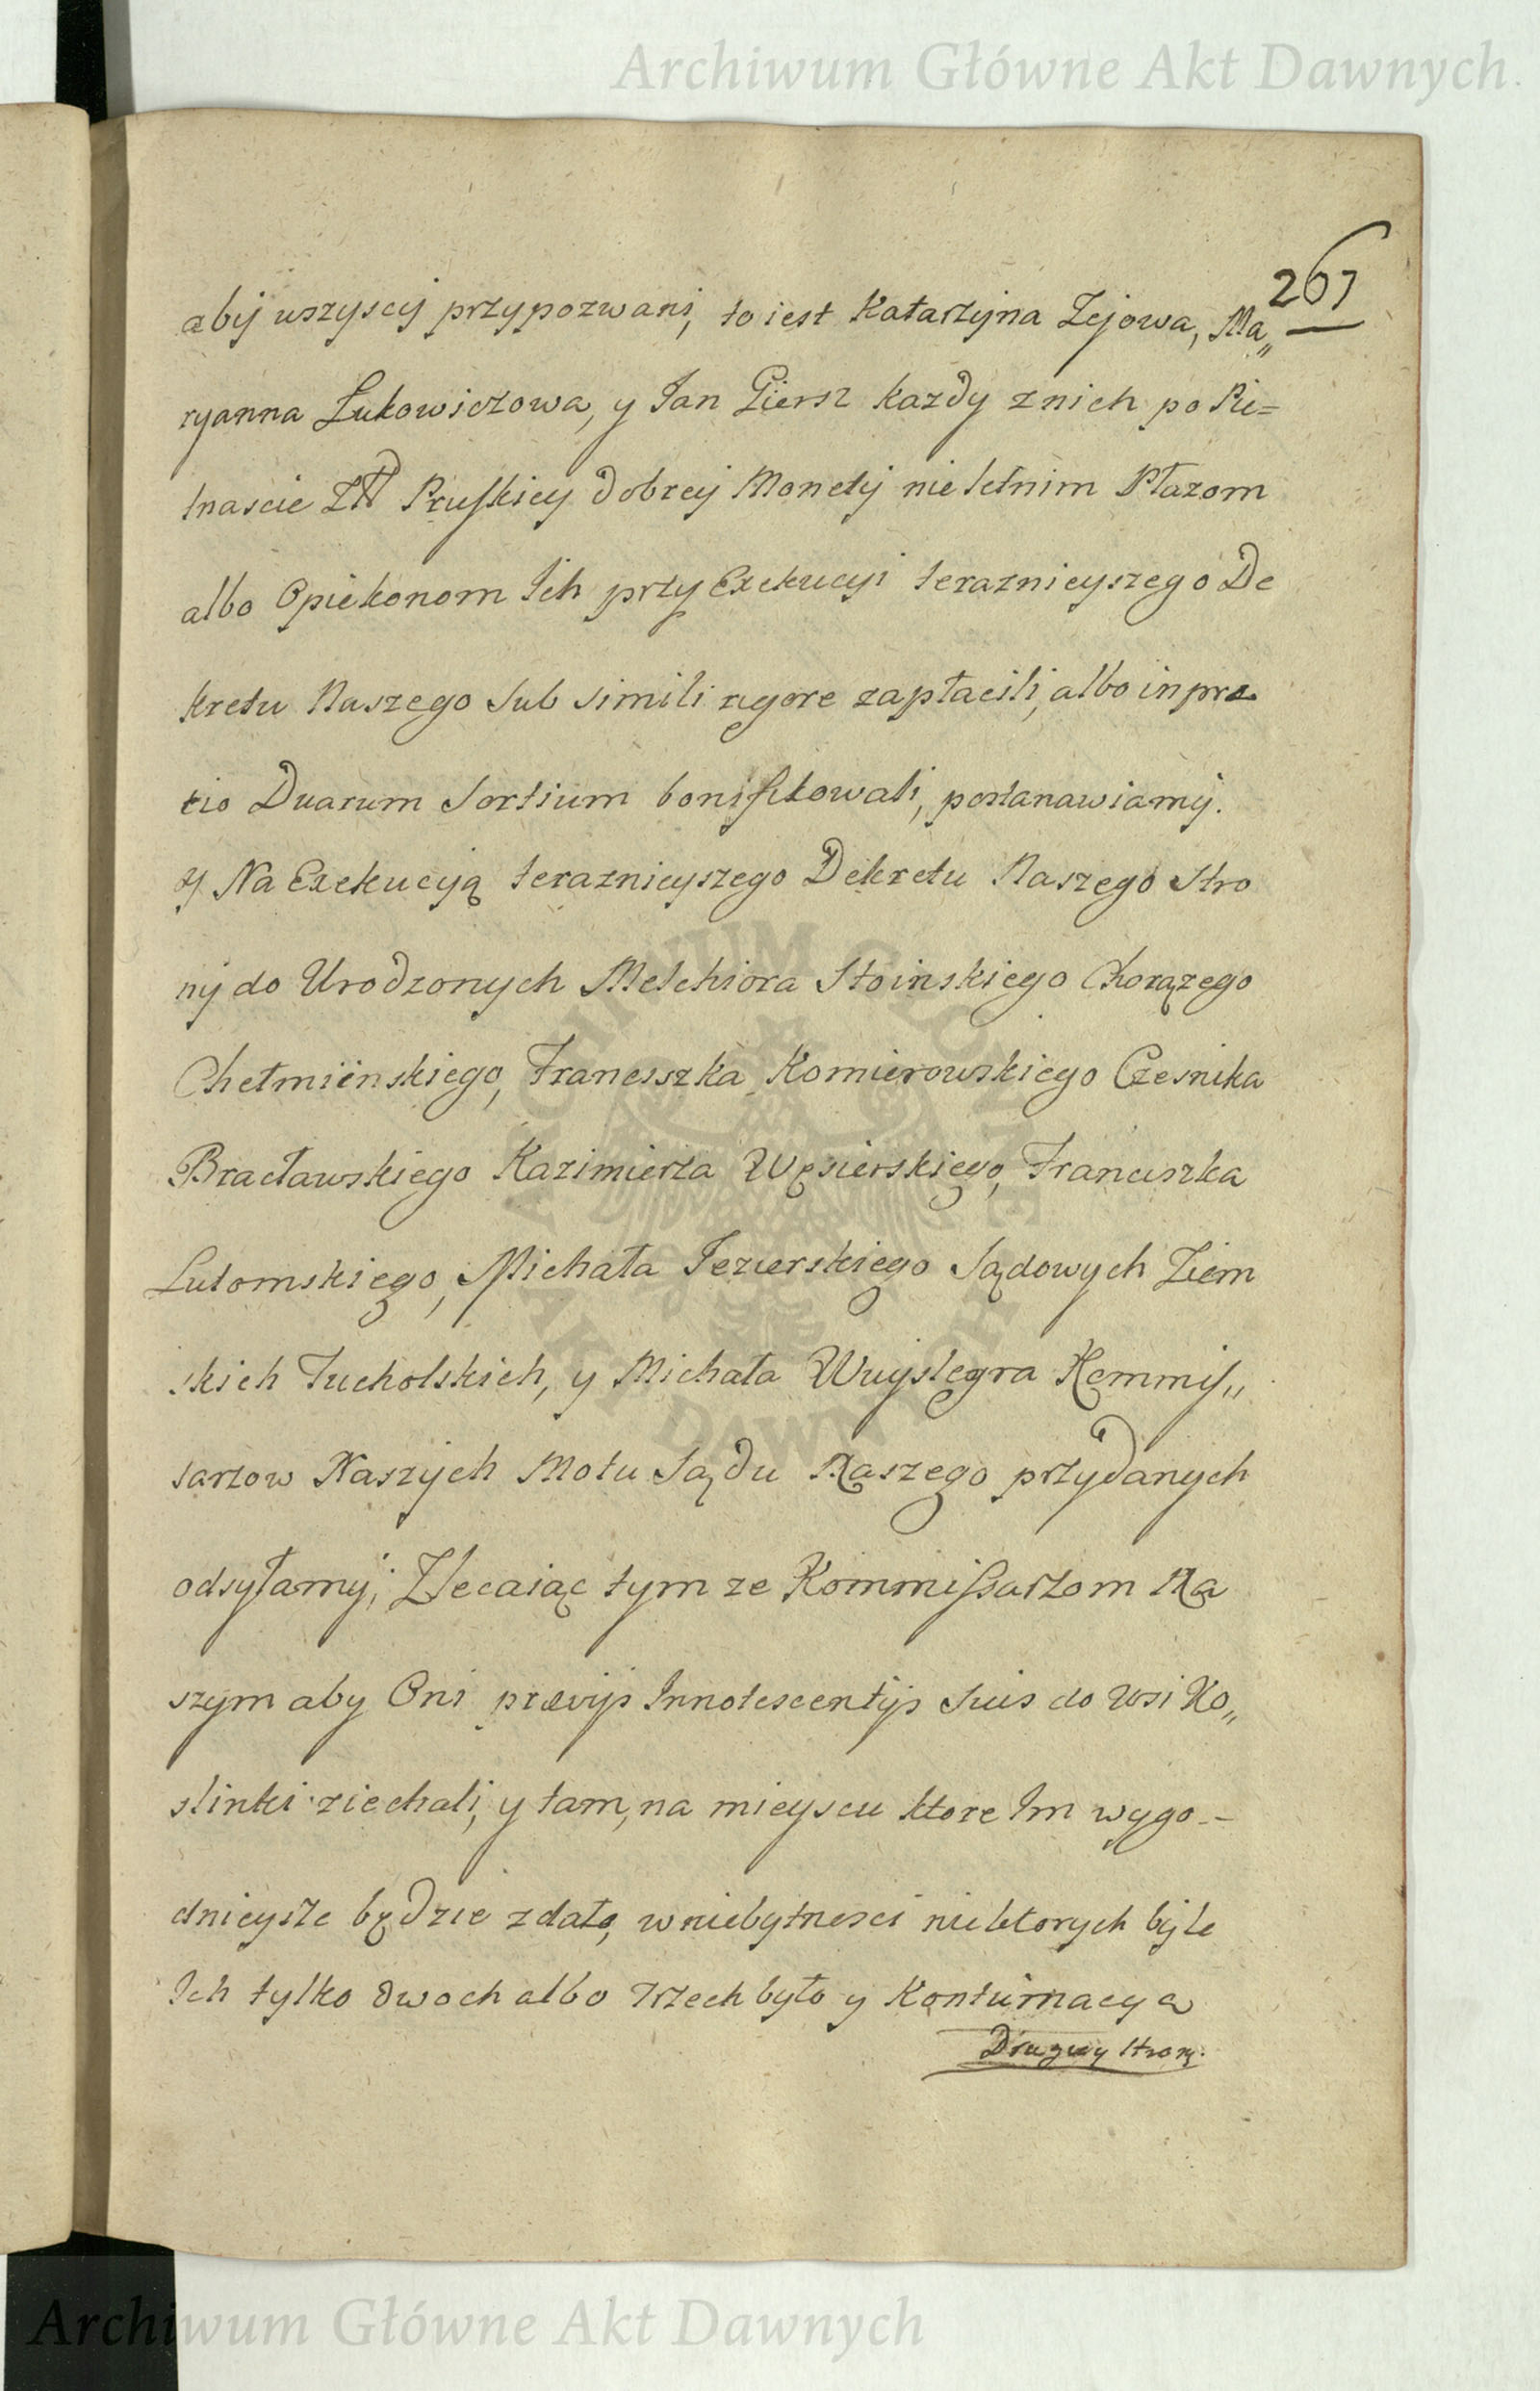 Archiwum Główne Akt Dawnych
267
abÿ uszyscÿ przypozwani, to iest Katarzÿna Zejowa, Ma„
ryanna Lukowiczowa, y Jan Giersz kazdy znich po Pie=
tnascie Zł Pruskiey dobreÿ Monetÿ nieletnim Płazom
albo Opiekonom Ich przy Exekucÿi teraznieyszego De
kretu Naszego sub simili rigore zapłacili, albo in præ
tio Duarum Sortium bonifikowali, postanawiamÿ.
y Na Exekucÿą teraznieyszego Dekretu Naszego Stro
nÿ do Urodzonych Melchiora Stoinskiego Chorązego
Chełmiinskiego, Franciszka Komierowskiego Czesnika
Bracławskiego Kazimierza Węsierskiego, Franciszka
Lutomskiego, Michała Jezierskiego Sądowych Ziem
skich Tucholskich, y Michała Wuyslegra Kommis„
sarzow Naszÿch Motu Sądu Naszego przydanych
odsyłamÿ, Zlecaiąc tym ze Kommissarzom Na
szym aby Oni prævÿs Innotescentÿs Suis do Wsi Ko„
slinki ziechali, y tam, na mieyscu ktore Im wygo–
dnieysze będzie zdało, w niebytnosci niektorych bÿle
Ich tylko dwoch albo trzech było y Kontumacya
Drugiey Stroṇ.
ARCHIWUM GŁÓWNE AKT DAWNYCH
Archiwum Główne Akt Dawnych